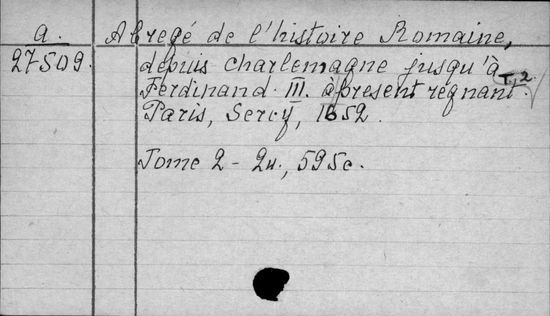 a. Abregé de l'histoire Romaine,
27509. depuis Charlemagne jusqu'à T. 2
Ferdinand III. apresent regnant.
Paris, Sercy, 1652.
Tome 2 - 2u., 595c.